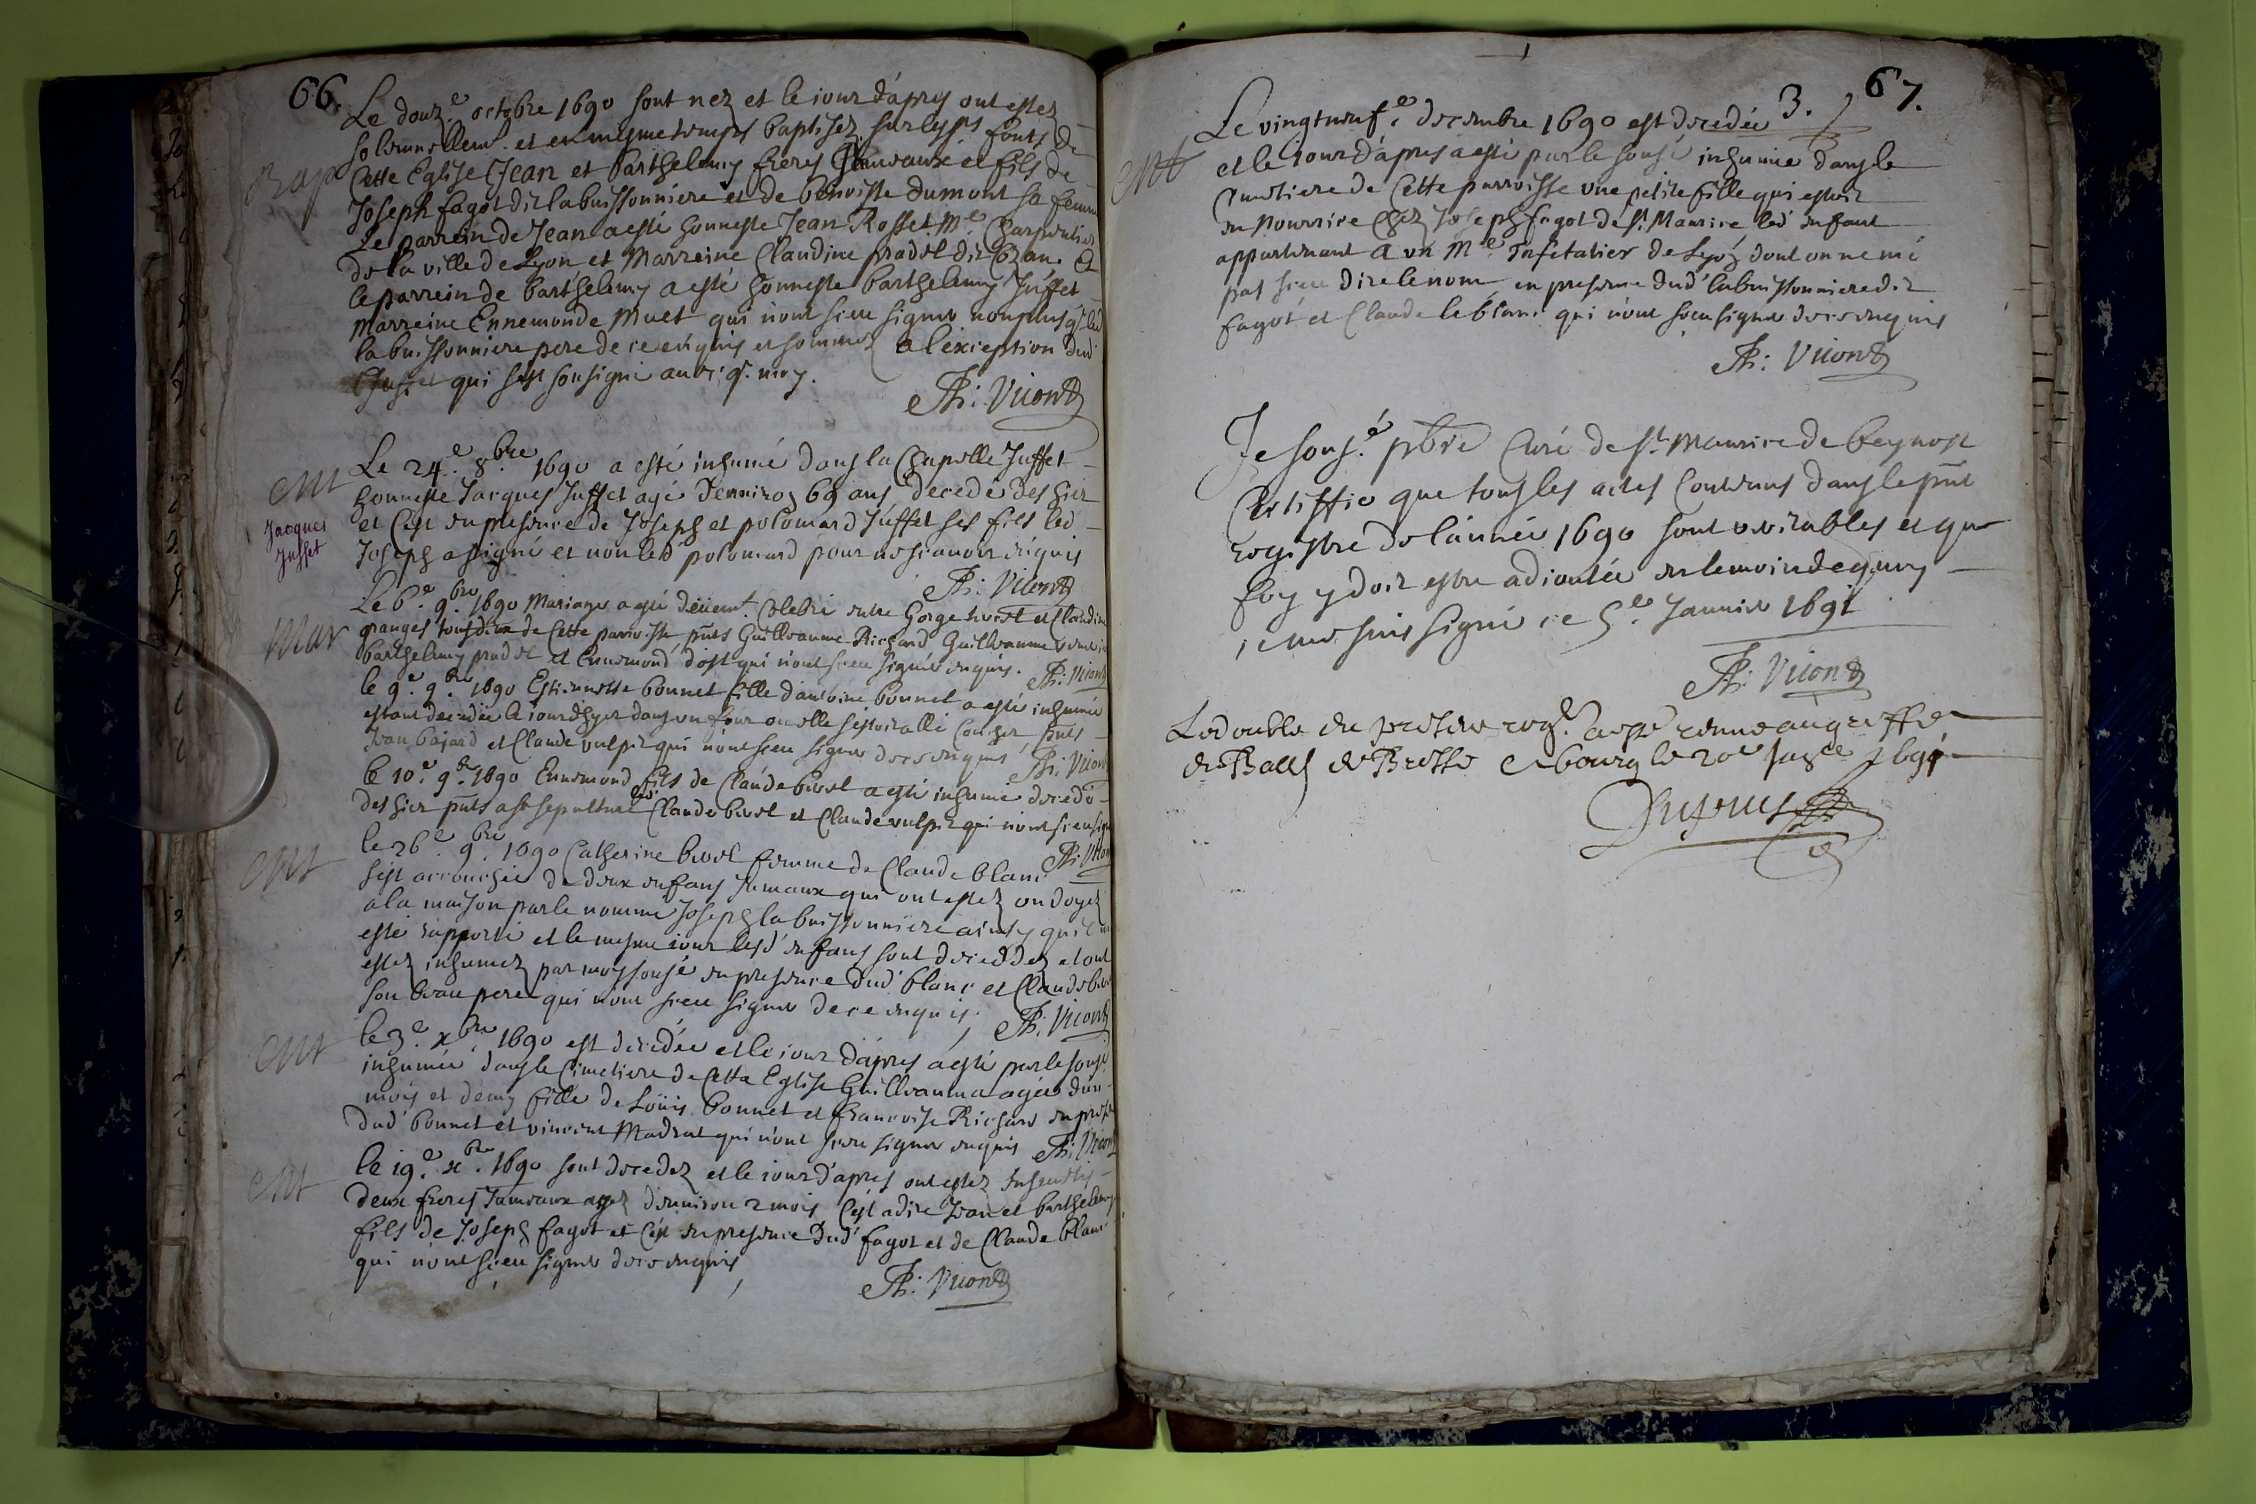 66.
Le douz.e octobre 1690 sont nez et le jour d'apres ont estez
solemnellemt. et en mesme temps baptisez sur les fonts de
Bap
Cette Eglise Jean et barthelemy freres Jumeaux et fils de
Joseph fagot dit labuissonniere et de benoiste dumont sa femme
Le parrein de Jean a esté honneste Jean Rosset Me. Charpentier
de la ville de Lyon et Marreine Claudine pradel dit Et
le parrein de barthelemy a esté honneste barthelemy Juffet
marreine Ennemonde Muet qui n'ont sceu signer non plus q. led
labuissonniere pere de ce enquis et sommez a l'exception dud
Juffet qui s'est sousigné avec q. moy.
Th: Vuond
Ent
Le 24.e 8.bre 1690 a esté inhumé dans la Chapelle Juffet
honneste Jacques Juffet agé d'environ 69 ans decedé des hier
Jacques
Juffet
et c'est en presence de Joseph et polomard Juffet ses fils led
Joseph a signé et non led polomard pour ne scavoir enquis
Th: Vuond
Mar
Le 6.e 9.bre 1690 Mariage a esté deüemt. celebré entre George et Claudine
granges tous deux de cette parroisse pnts Guilleaume Richard Guilleaume
barthelemy pradel et Ennemond dost qui n'ont sceu signer enquis. Th: Vuond
le 9.e 9.bre 1690 Estiennette bonnet fille d'antoine bonnet a esté inhumée
estant decedée le jour d'hyer dans un four ou elle s'estoit allé coucher pnts
Jean bajard et Claude vulpis qui n'ont sceu signer de ce enquis Th: Vuond
le 10.e 9.bre 1690 Ennemond fils de Claude bivel a esté inhumé decedé
des hier pnts a sa sepulture led Claude bivel et Claude vulpis qui n'ont sceu signer
Th: Vuond
Ent
le 26.e 9.bre 1690 Catherine bivel femme de Claude blanc
s'est accouchée de deux enfans jumeaux qui ont estez ondoyez
a la maison par le nommé Joseph labuissonniere ainsy qu'il m'a
esté rapporté et le mesme jour lesd enfans sont decedez et ont
estez inhumez par moy sousé en presence dud blanc et Claude bivel
son beau pere qui n'ont sceu signer de ce enquis. Th: Vuond
Ent
le 3.e x.bre 1690 est decedée et le jour d'apres a esté par le sousé
inhumée dans le Cimetiere de Cette Eglise Guilleauma agée d'un
mois et demy fille de Loüis bonnet et francoise Richard en presence
dud bonnet et vincent Madrat qui n'ont sceu signer enquis Th: Vuond
Ent
le 19.e x.bre 1690 sont decedez et le jour d'apres ont estez Ensevelis
deux freres Jumeaux agez d'environ 2 mois C'est a dire Jean et barthelemy
fils de Joseph fagot et c'est en presence dud fagot et de Claude blanc
qui n'ont sceu signer de ce enquis
Th: Vuond
3.
67.
Le vingtneuf.e decembre 1690 est decedée
Ent
et le jour d'apres a esté par le sousé inhumée dans le
Cimetiere de Cette parroisse une petite fille qui estoit
en Nourrice Chez Joseph fagot de St. Maurice led enfant
appartenant a un Me. Tafetatier de Lyon dont on ne m'a
pas sceu dire le nom en presence dud labuissonniere dit
fagot et Claude leblanc qui n'ont sceu signer de ce enquis
Th: Vuond
Je sousé. pbre Curé de St. Maurice de beynost
Certiffie que tous les actes Contenus dans le pnt
registre de l'année 1690 sont veritables et que
foy y doit estre adjoutée en temoin de quoy
je me suis signé ce 5.e Janvier 1691
Th: Vuond
Le double du present reg.e a esté remis au greffe
du Ball. de Bresse a bourg le 20e 1691